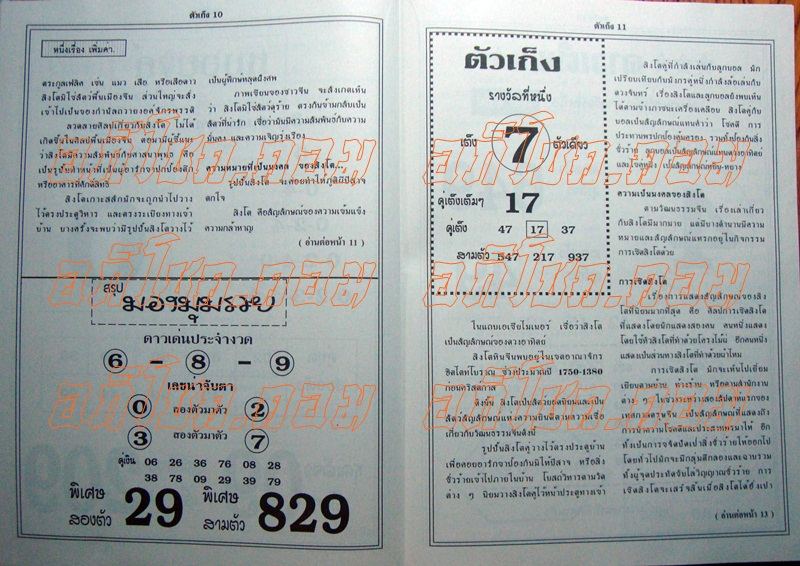 ตัวเก็ง 10
หนึ่งเรื่อง เพิ่มค่า.
ตระกูลเฟลิด เช่น แมว เสือ หรือเสือดาว
สิงโตมิใช่สัตว์พื้นเมืองจีน ส่วนใหญ่จะส่ง
เข้าไปเป็นของกำนัลถวายองค์จักรพรรดิ
ลวดลายศิลปเกี่ยวกับสิงโต ไม่ได้
เกิดขึ้นในศิลปพื้นเมืองจีน ต่อมามีผู้ชี้แนะ
ว่าสิงโตมีความสัมพันธ์กับศาสนาพุทธ คือ
เป็นรูปปั้นทำหน้าที่เป็นผู้อารักขาปกป้องตึก
หรืออาคารที่ศักดิ์สิทธิ์
สิงโตเกาะสลักมักจะถูกนำไปวาง
ไว้ตรงประตูวิหาร และตรงระเบียงทางเข้า
บ้าน บางครั้งจะพบว่ามีรูปปั้นสิงโตวางไว้
เป็นผู้พิทักษ์หลุมฝังศพ
ภาพเขียนของชาวจีน จะสังเกตเห็น
ว่า สิงโตมิใช่สัตว์ดุร้าย ตรงกันข้ามกลับเป็น
สัตว์ที่น่ารัก เชื่อว่ามันมีความสัมพันธ์กับความ
มั่นคง และความเจริญรุ่งเรือง
ความหมายที่เป็นมงคล ของสิงโต...
รูปปั้นสิงโต จะคอยทำให้ภูตผีปีศาจ
ตกใจ
สิงโต คือสัญลักษณ์ของความเข้มแข็ง
ความกล้าหาญ
( อ่านต่อหน้า 11 )
สรุป
ดาวเด่นประจำงวด
6 - 8 - 9
เลขน่าจับตา
0 สองตัวมาตัว 2
3 สองตัวมาตัว 7
คู่เงิน 06 26 36 76 08 28
38 78 09 29 39 79
พิเศษ สองตัว 29 พิเศษ สามตัว 829
ตัวเก็ง 11
ตัวเก็ง
รางวัลที่หนึ่ง
เต็ง 7 ตัวเดียว
คู่เต็งเต็มๆ 17
คู่เต็ง 47 17 37
สามตัว 547 217 937
ในแถบเอเชียไมเนอร์ เชื่อว่าสิงโต
เป็นสัญลักษณ์ของดวงอาทิตย์
สิงโตหินจีนพบอยู่ในเขตอาณาจักร
ฮิตไตท์โบราณ ช่วงประมาณปี 1750-1380
ก่อนคริสตกาล
ดังนั้น สิงโตเป็นสัตว์ยอดนิยมและเป็น
สัตว์สัญลักษณ์แห่งความยินดีตามความเชื่อ
เกี่ยวกับวัฒนธรรมจีนดังนี้
รูปปั้นสิงโตคู่วางไว้ตรงประตูบ้าน
เพื่อคอยอารักขาป้องกันมิให้ปีศาจ หรือสิ่ง
ชั่วร้ายเข้าไปภายในบ้าน โบสถ์วิหารตามวัด
ต่าง ๆ นิยมวางสิงโตคู่ไว้หน้าประตูทางเข้า
สิงโตคู่ที่กำลังเล่นกับลูกบอล มัก
เปรียบเทียบกับมังกรคู่หนึ่งกำลังล้อเล่นกับ
ดวงจันทร์ เรื่องสิงโตและลูกบอลยังพบเห็น
ได้ตามข้างภาชนะเครื่องเคลือบ สิงโตคู่กับ
บอลเป็นสัญลักษณ์แทนคำว่า โชคดี การ
ประทานพรปกป้องคุ้มครอง รวมทั้งป้องกันสิ่ง
ชั่วร้าย ลูกบอลเป็นสัญลักษณ์แทนดวงอาทิตย์
และไข่คู่หนึ่ง เป็นสัญลักษณ์หยิน-หยาง
ความเป็นมงคลของสิงโต
ตามวัฒนธรรมจีน เรื่องเล่าเกี่ยว
กับสิงโตมีมากมาย แต่มีบางตำนานมีความ
หมายและสัญลักษณ์แทรกอยู่ในกิจกรรม
การเชิดสิงโตด้วย
การเชิดสิงโต
เรื่องการแสดงสัญลักษณ์ของสิง
โตที่นิยมมากที่สุด คือ ศิลปการเชิดสิงโต
ที่แสดงโดยนักแสดงสองคน คนหนึ่งแสดง
โดยใช้หัวสิงโตที่ทำด้วยโครงไม้ไผ่ อีกคนหนึ่ง
แสดงเป็นส่วนหางสิงโตที่ทำด้วยผ้าไหม
การเชิดสิงโต มักจะเห็นไปเยี่ยม
เยียนตามบ้าน ห้างร้าน หรือตามสำนักงาน
ต่าง ๆ ในช่วงระหว่างสองสัปดาห์แรกของ
เทศกาลตรุษจีน เป็นสัญลักษณ์ที่แสดงถึง
การนำความโชคดีและประสาทพรมาให้ อีก
ทั้งเป็นการขจัดปัดเป่าสิ่งชั่วร้ายให้ออกไป
โดยทั่วไปมักจะมีกลุ่มตีกลองและฉาบรวม
ทั้งผู้จุดประทัดขับไล่วิญญาณชั่วร้าย การ
เชิดสิงโตจะเสร็จสิ้นเมื่อสิงโตได้อั่งเปา
( อ่านต่อหน้า 13 )
อภิโชค.คอม
อภิโชค.คอม
อภิโชค.คอม
อภิโชค.คอม
อภิโชค.คอม
อภิโชค.คอม